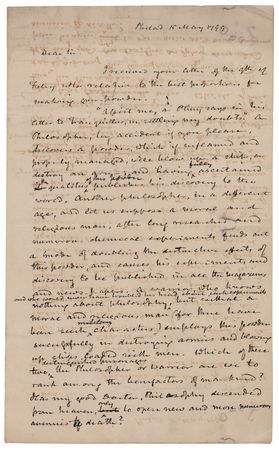 Philad 15 May 1797
Dear Sir
I received your letter of the 9th of
Feby ulto relative to the best proportions for
making gun powder.
"Assist me, as Pliny says in his
letter to Tranquillus, in settling my doubts" A
Philosopher, by accident if you please,
discovers a powder, which if inflamed and
properly managed, will blow up a ship, or
destroy an army; and having ascertained
its qualities publishes his discovery to the
world. Another philosopher, in a different
age, and let us suppose a moral and
religious man, after long researches and
numerous chemical experiments finds out
a mode of doubling the destructive effects of
this powder, and causes his experiments and
discovery to be published in all the magazines
and news papers. A warrior, who knows
nothing about philosophy, but withal a
moral and religious man (for there have
been such military characters) employs this powder
successfully in destroying armies and blowing
up ships loaded with men. Which of these
two, the Philosopher or Warrior are we to
rank among the benefactors of mankind?
Has my good Doctor, Philosophy descended
from heaven, only to open new and more numerous
avenues to death?